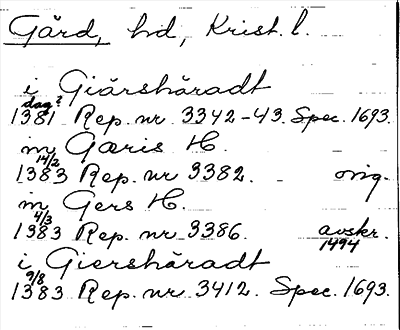 Gärd, hd, Krist. l.
i Giärshäradt
dag?
1381 Rep. nr 3342-43. Spec. 1693.
in Gæris H.
14/2
1383 Rep. nr 3382. - orig.
in Gers H.
4/3
1383 Rep. nr 3386. avskr. 1494
i Giershäradt
9/8
1383 Rep. nr 3412. Spec. 1693.